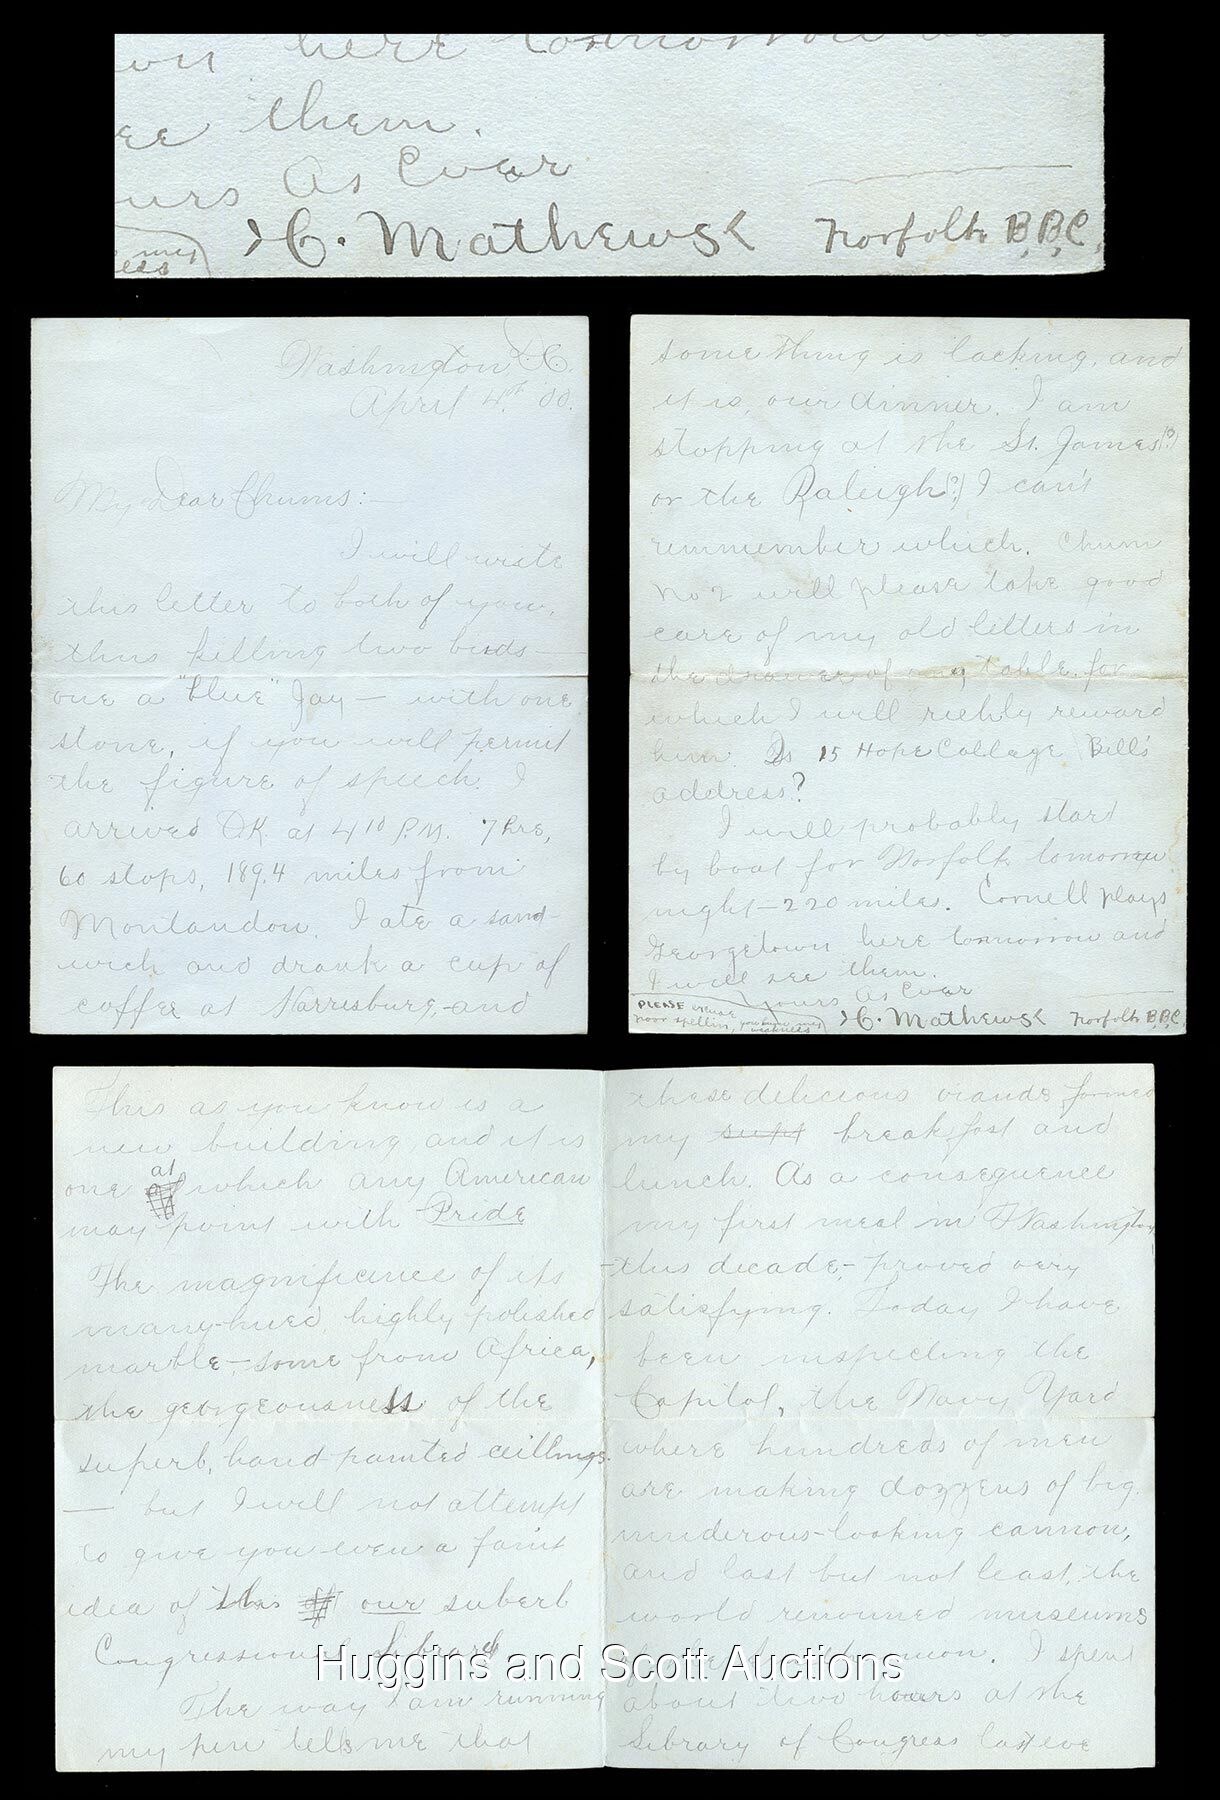 on here tomorrow
ee them.
urs As Ever
C. Mathews Norfolk B.B.C.
my
ess
Washington D.C.
April 4th '00.
My Dear Chums:—
I will write
this letter to both of you,
thus killing two birds—
one a "blue" Jay — with one
stone, if you will permit
the figure of speech. I
arrived OK. at 4 10 P.M. 7 hrs,
60 stops, 189.4 miles from
Montandon. I ate a sand-
wich and drank a cup of
coffee at Harrisburg, and
something is lacking, and
it is, our dinner. I am
stopping at the St. James(?)
or the Raleigh(?) I can't
remmember which. Chum
No 2 will please take good
care of my old letters in
the drawer of my table, for
which I will richly reward
him. Is 15 Hope College Bill's
address?
I will probably start
by boat for Norfolk tomorrow
night—220 miles. Cornell plays
Georgetown here tomorrow and
I will see them.
Yours As Ever
PLEASE excuse
poor spellin, you know my
weakness
C. Mathews Norfolk B.B.C.
This as you know is a
new building, and it is
one at which any American
may point with Pride
The magnificence of its
many-hued, highly polished
marble,—some from Africa,
the georgeousness of the
superb, hand-painted ceillings
— but I will not attempt
to give you even a faint
idea of this our suberb
Congressional Library
The way I am running
my pen tells me that
these delicious viands formed
my supt breakfast and
lunch. As a consequence
my first meal in Washington,
—this decade,— proved very
satisfying. Today I have
been inspecting the
Capitol, the Navy Yard
where hundreds of men
are making dozzens of big
murderous-looking cannon,
and last but not least, the
world renouned museums
of the
I spent
about two hours at the
Library of Congress last eve
Huggins and Scott Auctions